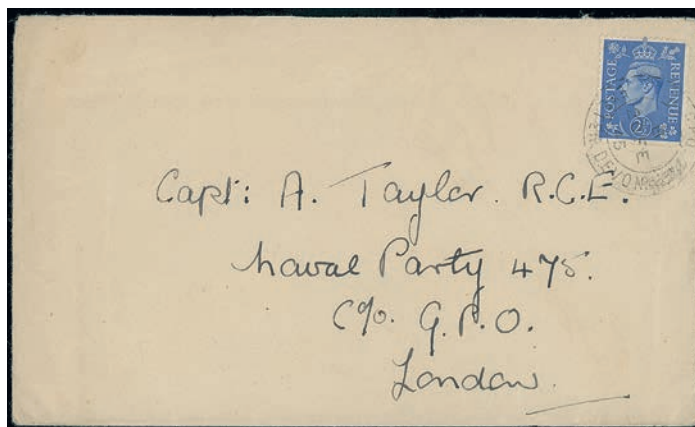 POSTAGE REVENUE
2½
DEVON
Capt: A. Taylor. R.C.E.
Naval Party 475.
C/o. G.P.O.
London.